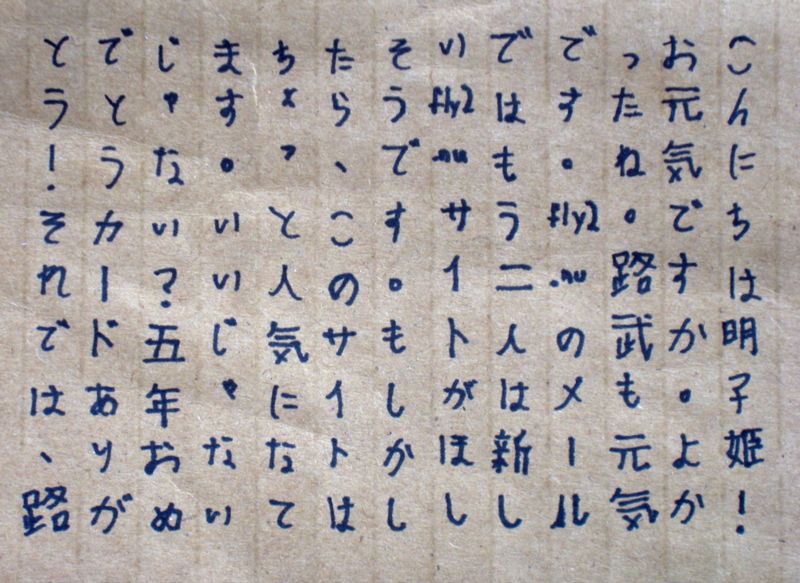 こんにちは明子姫！
お元気ですか。よか
ったね。路武も元気
です。fly2.nuのメール
ではもう二人は新し
いfly2.nuサイトがほし
そうです。もしかし
たら、このサイトは
ちょっと人気になて
ます。いいじゃない
じゃない？五年おめ
でとうカードありが
とう！それでは、路